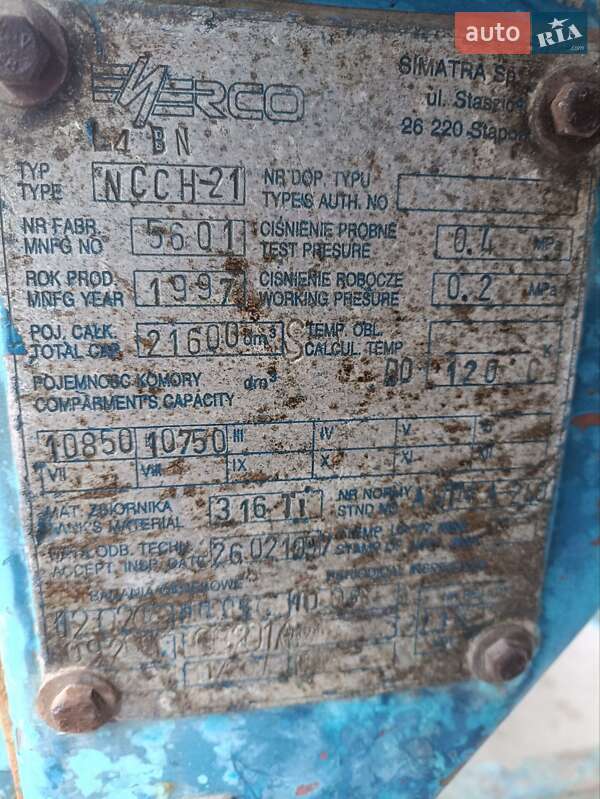 auto RIA .com
ENERCO
SIMATRA Sp.
ul. Staszica
26 220 Stąpor
L4BN
TYP
TYPE
NCCH-21
NR DOP. TYPU
TYPEIS AUTH. NO
NR FABR.
MNFG NO
5601
CIŚNIENIE PRÓBNE
TEST PRESURE
0.4 MPa
ROK PROD.
MNFG YEAR
1997
CIŚNIENIE ROBOCZE
WORKING PRESURE
0.2 MPa
POJ. CAŁK.
TOTAL CAP.
21600 dm³ S
TEMP. OBL.
CALCUL. TEMP
DO 120 C
POJEMNOŚĆ KOMORY dm³
COMPARMENTS CAPACITY
10850 10750 III IV V
VII VIII IX X XI XII
MAT. ZBIORNIKA
TANK'S MATERIAL
316 Ti
NR NORMY
STND NO
DATA ODB. TECHN.
ACCEPT. INSP. DATE
26.02.1997
BADANIA OKRESOWE